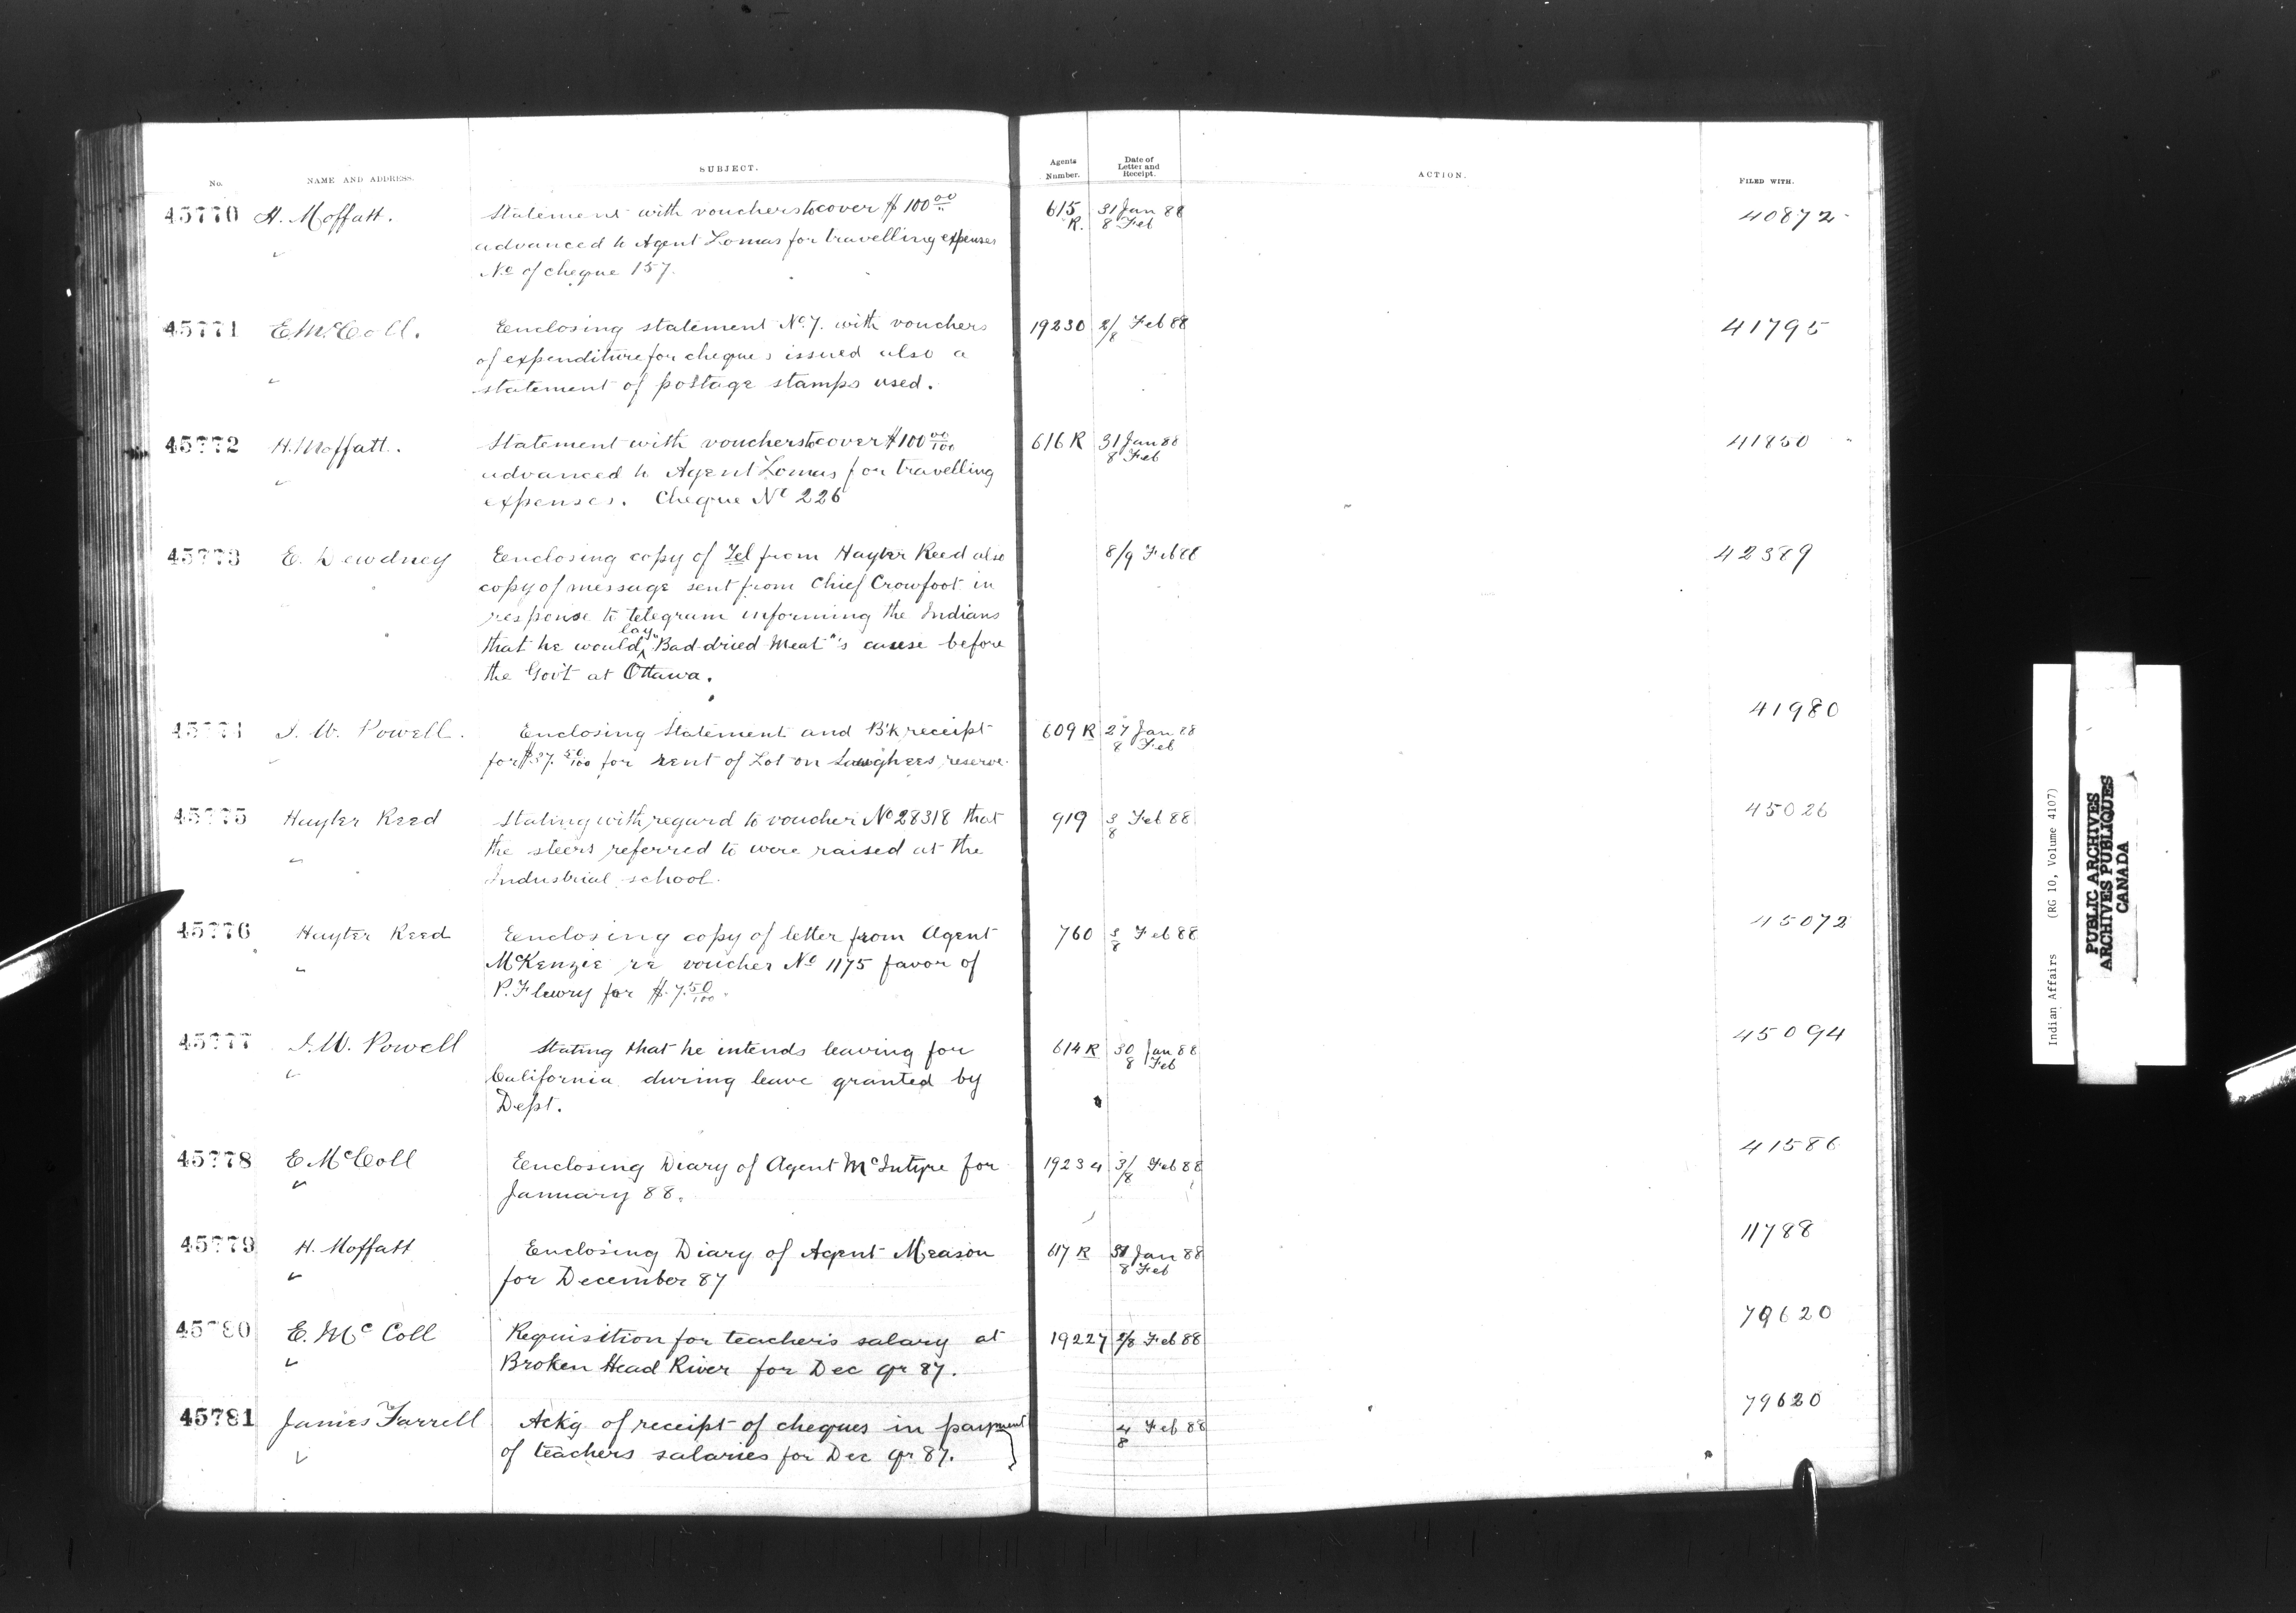 No.
NAME AND ADDRESS.
SUBJECT.
Agents Number.
Date of Letter and Receipt.
ACTION.
FILED WITH.
45770 H. Moffatt. Statement with vouchers to cover $100 00 615 R. 31 Jan 88 40872
advanced to Agent Lomas for travelling expenses 8 Feb
No of cheque 157.
45771 E. McColl. Enclosing statement No. 7. with vouchers 19230 2/8 Feb 88 41795
of expenditure for cheques issued also a
statement of postage stamps used.
45772 H. Moffatt. Statement with vouchers to cover $100 00/100 616 R 31 Jan 88 41850
advanced to Agent Lomas for travelling 8 Feb
expenses. Cheque No 226
45773 E. Dewdney Enclosing copy of Tel from Hayter Reed also 8/9 Feb 88 42389
copy of message sent from Chief Crowfoot in
response to telegram informing the Indians
that he would lay "Bad dried Meat"'s cause before
the Gov't at Ottawa.
45774 I. W. Powell. Enclosing Statement and B'k receipt 609 R 27 Jan 88 41980
for $37. 50/100 for rent of Lot on reserve. 8 Feb
45775 Hayter Reed Stating with regard to voucher No 28318 that 919 3/8 Feb 88 45026
the steers referred to were raised at the
Industrial school.
45776 Hayter Reed Enclosing copy of letter from Agent 760 3/8 Feb 88 45072
McKenzie re voucher No 1175 favor of
P. Fleury for $7. 50/100
45777 I. W. Powell Stating that he intends leaving for 614 R 30 Jan 88 45094
California during leave granted by 8 Feb
Dept.
45778 E McColl Enclosing Diary of Agent McIntyre for 19234 3/8 Feb 88 41586
January 88.
45779 H. Moffatt Enclosing Diary of Agent Meason 617 R 31 Jan 88 11788
for December 87 8 Feb
45780 E. McColl Requisition for teacher's salary at 19227 2/8 Feb 88 79620
Broken Head River for Dec qr 87.
45781 James Farrell Ack'g of receipt of cheques in payment 4/8 Feb 88 79620
of teachers salaries for Dec qr 87.
Indian Affairs (RG 10, Volume 4107)
PUBLIC ARCHIVES
ARCHIVES PUBLIQUES
CANADA